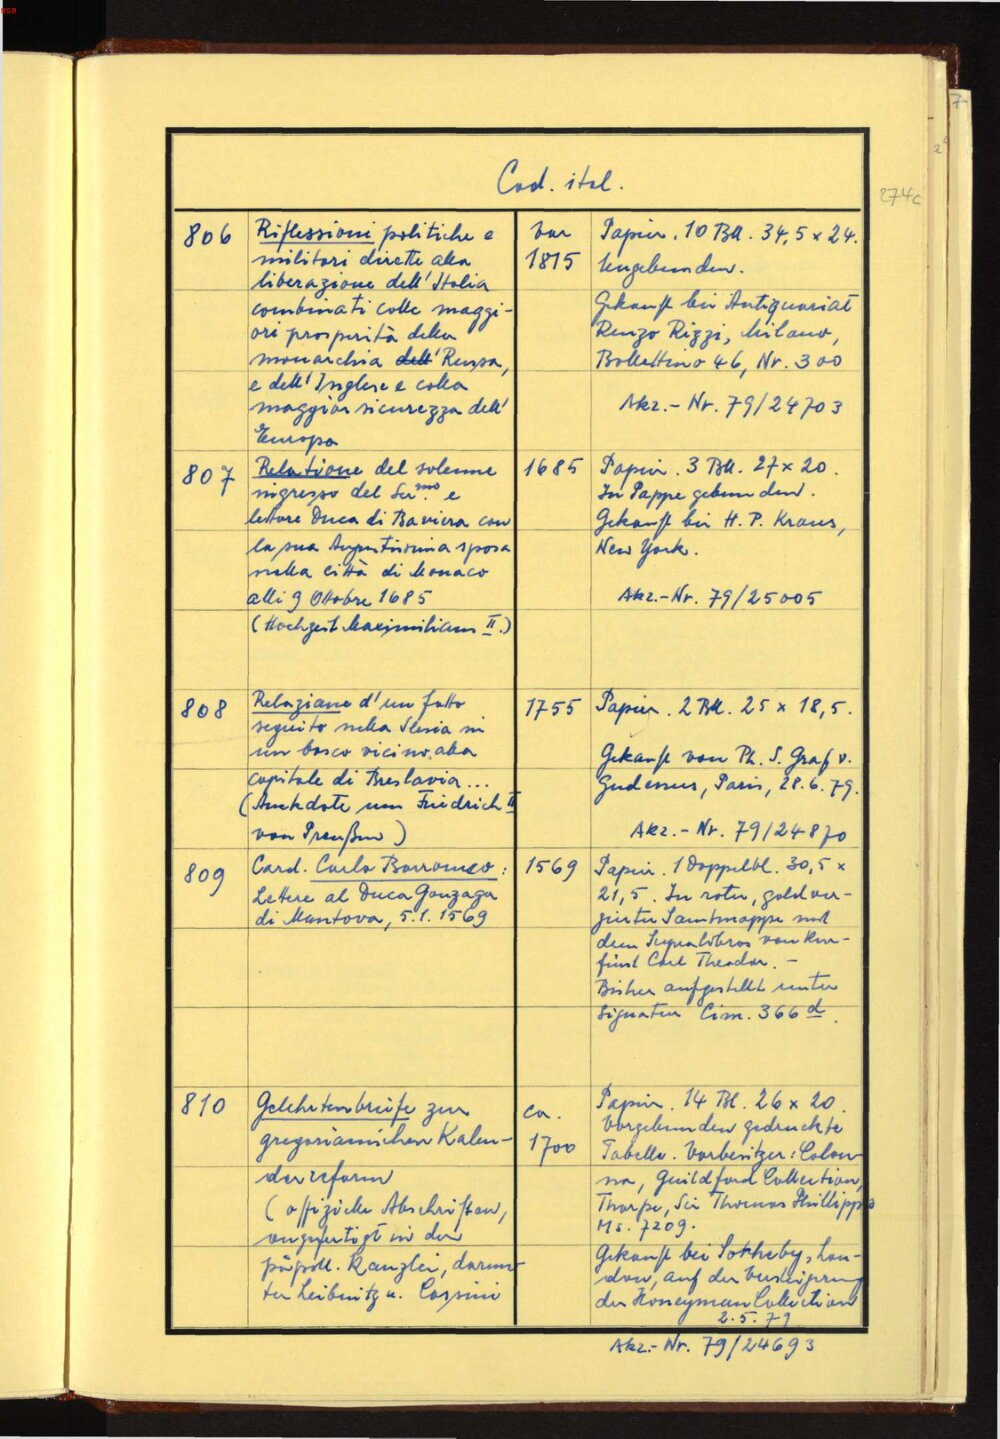 BSB
7
274c
Cod. ital.
806
Riflessioni politiche e
militari dirette alla
liberazione dell' Italia
combinati colle maggi-
ori prosperità della
monarchia dell' Russa,
e dell' Inglese e colla
maggior sicurezza dell'
Europa
vor
1815
Papier. 10 Bll. 34,5 x 24.
Ungebunden.
Gekauft bei Antiquariat
Renzo Rizzi, Milano,
Bollettino 46, Nr. 300
Akz.-Nr. 79/24703
807
Relatione del solenne
ingresso del Ser.mo e
lettore Duca di Baviera con
la sua Augustissima sposa
nella città di Monaco
alli 9 Ottobre 1685
(Hochzeit Maximilians II.)
1685
Papier. 3 Bll. 27 x 20.
In Pappe gebunden.
Gekauft bei H. P. Kraus,
New York.
Akz.-Nr. 79/25005
808
Relazione d'un fatto
seguito nella Slesia in
un bosco vicino alla
capitale di Breslavia ...
(Anekdote um Friedrich II
von Preußen)
1755
Papier. 2 Bll. 25 x 18,5.
Gekauft von Ph. S. Graf v.
Gudenus, Paris, 28.6.79.
Akz.-Nr. 79/24870
809
Card. Carlo Borromeo:
Lettere al Duca Gonzaga
di Mantova, 5.1.1569
1569
Papier. 1 Doppelbl. 30,5 x
21,5. In roter, goldver-
zierter Samtmappe mit
dem Supralibros von Kur-
fürst Carl Theodor. -
Bisher aufgestellt unter
Signatur Cim. 366 d.
810
Gelehrtenbriefe zur
gregorianischen Kalen-
derreform
(offizielle Abschriften,
angefertigt in der
päpstl. Kanzlei, darun-
ter Leibnitz u. Cassini
ca.
1700
Papier. 14 Bl. 26 x 20.
Vorgebunden gedruckte
Tabelle. Vorbesitzer: Colon-
na, Guildford Collection,
Thorpe, Sir Thomas Phillipps
Ms. 7209.
Gekauft bei Sotheby, Lon-
don, auf der Versteigerung
der Honeyman Collection
2.5.79
Akz.-Nr. 79/24693